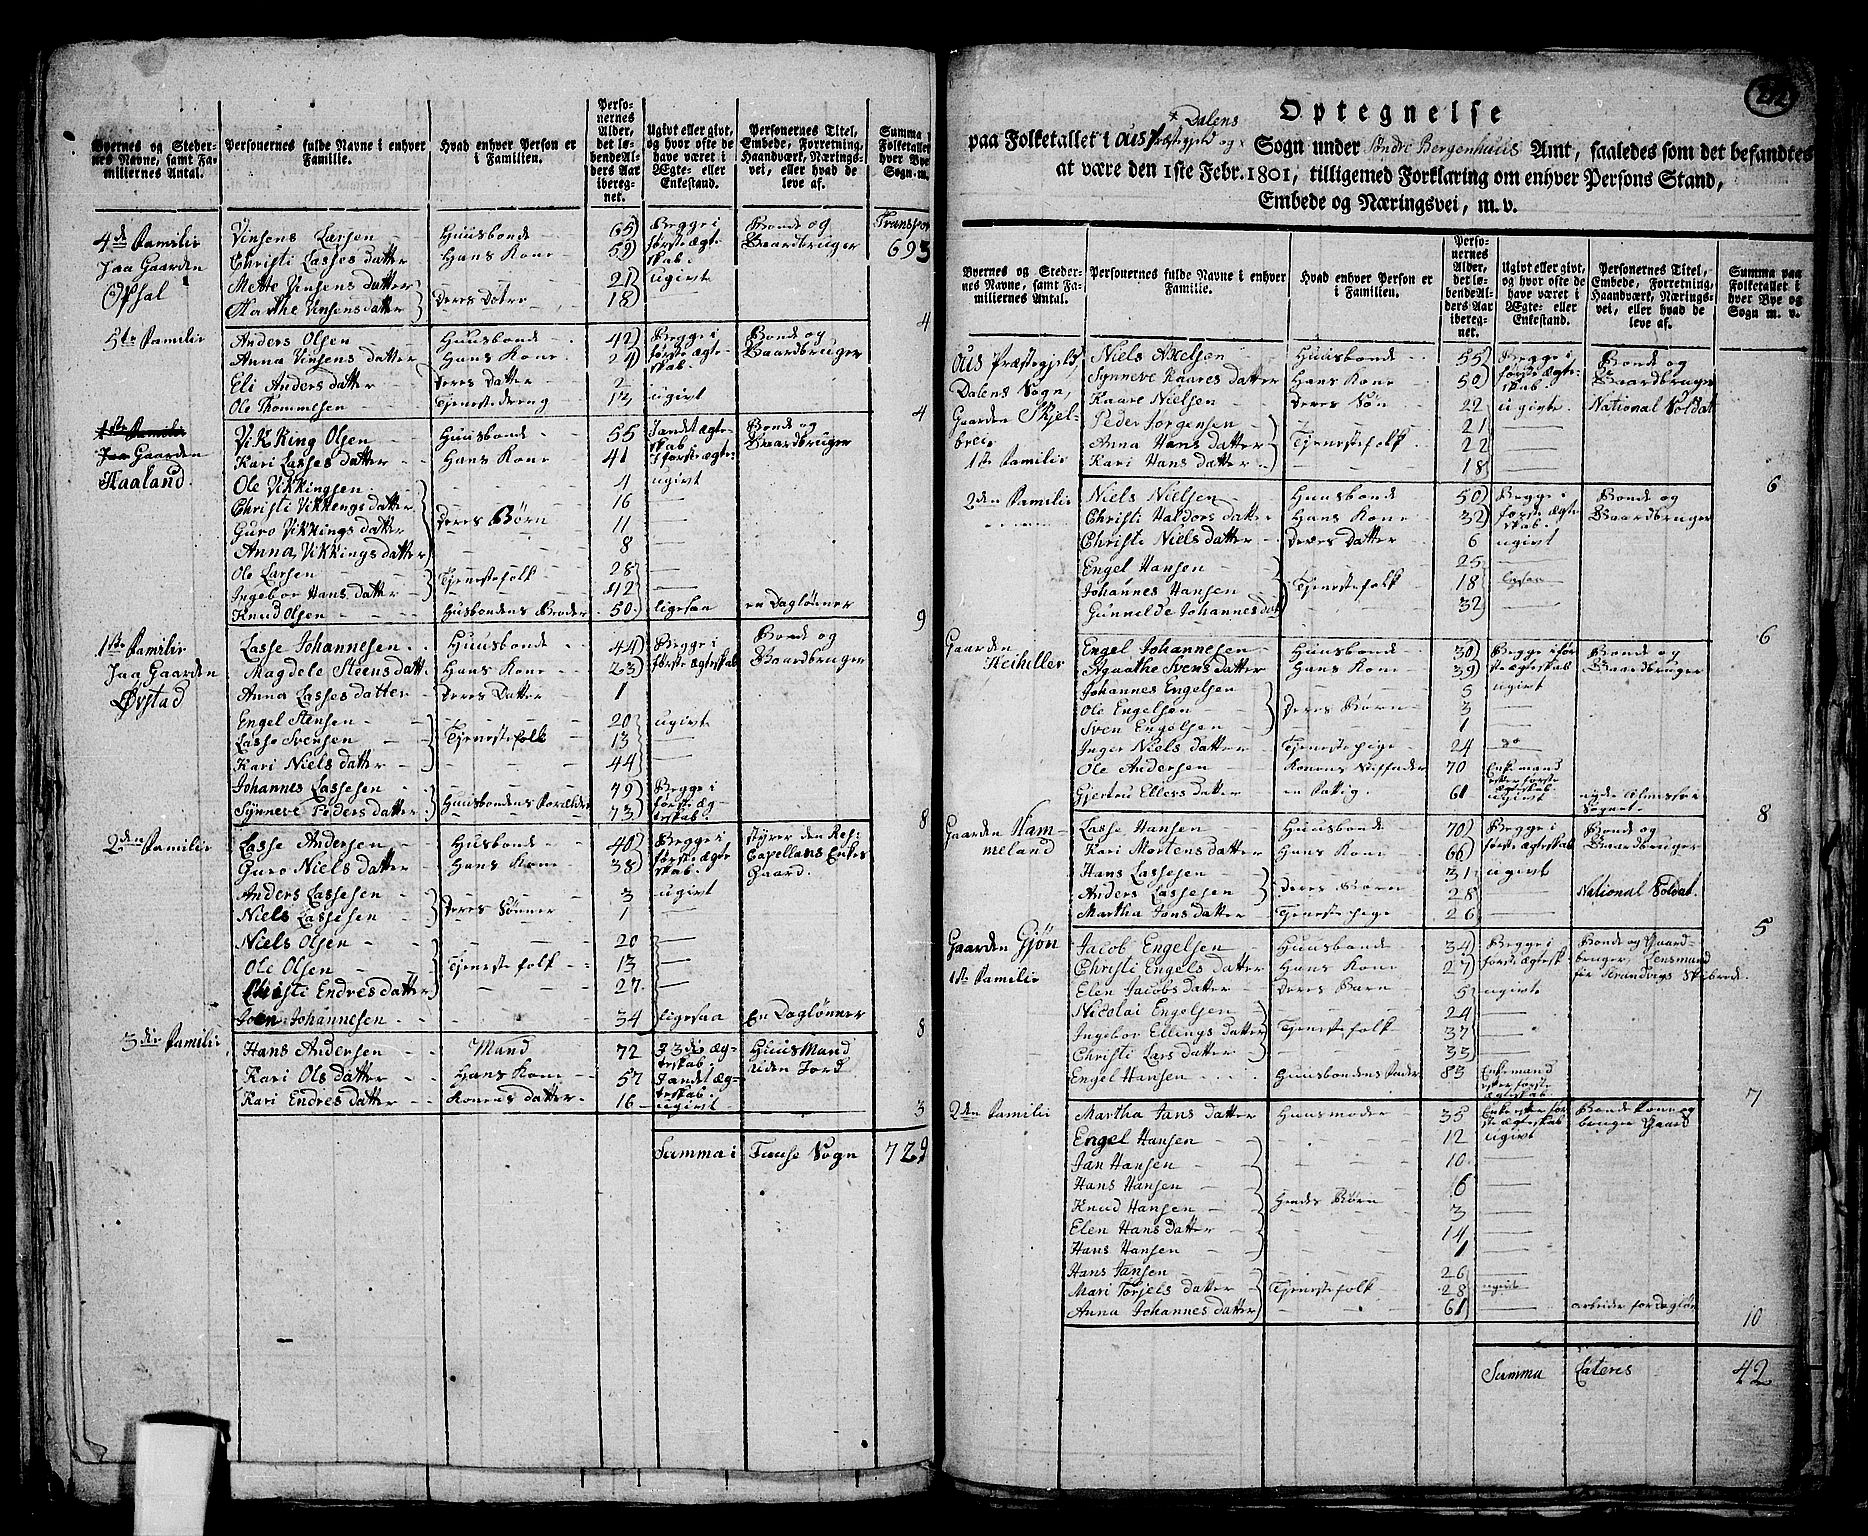 Byernes og Steder-
nes Navne, samt Fa-
miliernes Antal.
Personernes fulde Navne i enhver
Familie.
Hvad enhver Person er
i Familien.
Perso-
nernes
Alder,
det lø-
bende Al-
ders Aar
iberegnet.
Ugivt eller givt,
og hvor ofte de
have været i
Ægte- eller
Enkestand.
Personernes Titel,
Embede, Forretning,
Haandværk, Nærings-
vei, eller hvad de
leve af.
Summa
Folketallet
hver Bye
Sogn. m.
4de Familie Vinsens Larsen Huusbonde 65 Begge i Bonde og Transport
Jaa Gaarden Christi Lasses datter Hans Kone 59 første ægte- Gaardbruger 695
skab.
Opsal Mette Vinsens datter 21 ugivt
Marthe Vinsens datter Deres Døtre 18
4
5te Familie Anders Olsen Huusbonde 42 Begge i Bonde og
Anna Vinsens datter Hans Kone 24 første ægte- Gaardbruger
skab
Eli Anders datter Deres Datter 2
Ole Thommesen Tjenestedreng 13 ugivt
4
1ste Familie Vikking Olsen Huusbonde 55 Jandt ægte- Bonde og
Jaa Gaarden Kari Lasses datter Hans Kone 41 skab Gaardbruger
Haaland Ole Vikkingsen 4 ugivt
Christi Vikkings datter 16
Guro Vikkings datter Deres Børn 11
Anna Vikkings datter 8
Ole Larsen 28
Ingebor Hans datter Tjenestefolk 12
Knud Olsen Husbondens Broder 50 ligesaa en Daglønner
9
1ste Familie Lasse Johannesen Huusbonde 44 Begge i Bonde og
Jaa Gaarden Magdele Steens datt. Hans Kone 23 første ægteskab Gaardbruger
Øvstad Anna Lasses datter Deres Datter 1
Engel Stensen 20 ugivt
Lasse Svensen Tjenestefolk 13
Kari Niels datter 44
Johannes Lassesen 79 Begge i
Synneve Peders datter Huusbondens Forældre 73 første æg-
teskab.
8
2den Familie Lasse Andersen Husbonde 40 Begge i styrer den Res:
Guro Niels datter Hans Kone 38 første ægte Capellans Enkes
skab. Gaard.
Anders Lassesen 3 ugivt
Niels Lassesen Deres Sønner 1
Niels Olsen 20
Ole Olsen Tjenestefolk 13
Christi Endres datter 27
Joen Johannesen 34 ligesaa En Daglønner
8
3die Familie Hans Andersen Mand 72 3die æg- Huusmand
teskab uden Jord
Kari Ols datter Hans Kone 57 Jandt æg-
teskab
Kari Endres datter Konens datter 16 ugivt
3
Summa i Fuuse Sogn 729
212
Optegnelse
Dalens
paa Folketallet i Aus Præstegield og Sogn under Søndre Bergenhuus Amt, saaledes som det befandtes
at være den 1ste Febr. 1801, tilligemed Forklaring om enhver Persons Stand,
Embede og Næringsvei, m. v.
Byernes og Steder-
nes Navne, samt Fa-
miliernes Antal.
Personernes fulde Navne i enhver
Familie.
Hvad enhver Person er
i Familien.
Perso-
nernes
Alder,
det lø-
bende Al-
ders Aar
iberegnet.
Ugivt eller givt,
og hvor ofte de
have været i
Ægte- eller
Enkestand.
Personernes Titel,
Embede, Forretning,
Haandværk, Nærings-
vei, eller hvad de
leve af.
Summa paa
Folketallet i
hver Bye og
Sogn m. v.
Aus Præstegjeld Niels Axelsen Huusbonde 55 Begge i Bonde og
Dalens Sogn, Synneve Kaares datter Hans Kone 50 første ægte- Gaardbruger
skab
Gaarden Skjel- Kaare Nielsen Deres Søn 22 ugivte. National Soldat
bret Peder Jørgensen 21
Anna Hans datter Tjenestefolk 22
1te Familie Kari Hans datter 18
6
2den Familie Niels Nielsen Huusbonde 50 Begge i Bonde og
Christi Haldors datter Hans Kone 32 første ægte- Gaardbruger
skab.
Christi Niels datter Deres Datter 6 ugivt
Engel Hansen 25
Johannes Hansen Tjenestefolk 18
Gunnilde Johannes dat 32
6
Gaarden Engel Johannesen Huusbonde 30 Begge i før Bonde og
Keihiller Agaathe Svens datter Hans Kone 39 ste ægteskab Gaardbruger
Johannes Engelsen 5 ugivt
Ole Engelsen Deres Børn 3
Sven Engelsen 1
Inger Niels datter Tjenestepige 24 do
Ole Andersen Konens Stiffader 70 Enkemand
efter første
ægteskab
Gjertru Ellefs datter en Fattig 61 ugivt nyder Almisse
Sognet
8
Gaarden Ham- Lasse Hansen Huusbonde 70 Begge i Bonde og
meland Kari Mortens datter Hans Kone 66 første ægteskab Gaardbruger
Hans Lassesen 31 ugivt
Anders Lassesen Deres Børn 28 National Soldat.
Martha Jans datter Tjenestepige 26
5
Gaarden Gjøn Jacob Engelsen Huusbonde 34 Begge i Bonde og Gaard-
Christi Engels datter Hans Kone 27 første ægtesk bruger, Lensmand
1ste Familie Elen Jacobs datter Deres Barn 5 ugivte for Strandvigs Skibrede.
Nicolai Engelsen 24
Ingebor Ellings datter Tjenestefolk 37
Christi Lars datter 33
Engel Hansen Huusbondens Fader 83 Enkemand
efter første
ægteskab
7
2den Familie Martha Jans datter Huusmoder 35 Enke efter før Bonde kone og
ste ægteskab bruger Gaard
Engel Hansen 12 ugivt
Jan Hansen 10
Hans Hansen 6
Knud Hansen Hendes Børn 3
Elen Hans datter 14
Hans Hansen 1
Hans Jansen 26
Mari Torjels datter Tjenestefolk 28 ugivt
Anna Johannes datter 61 arbeider for Dagløn
10
Summa Lateris 42